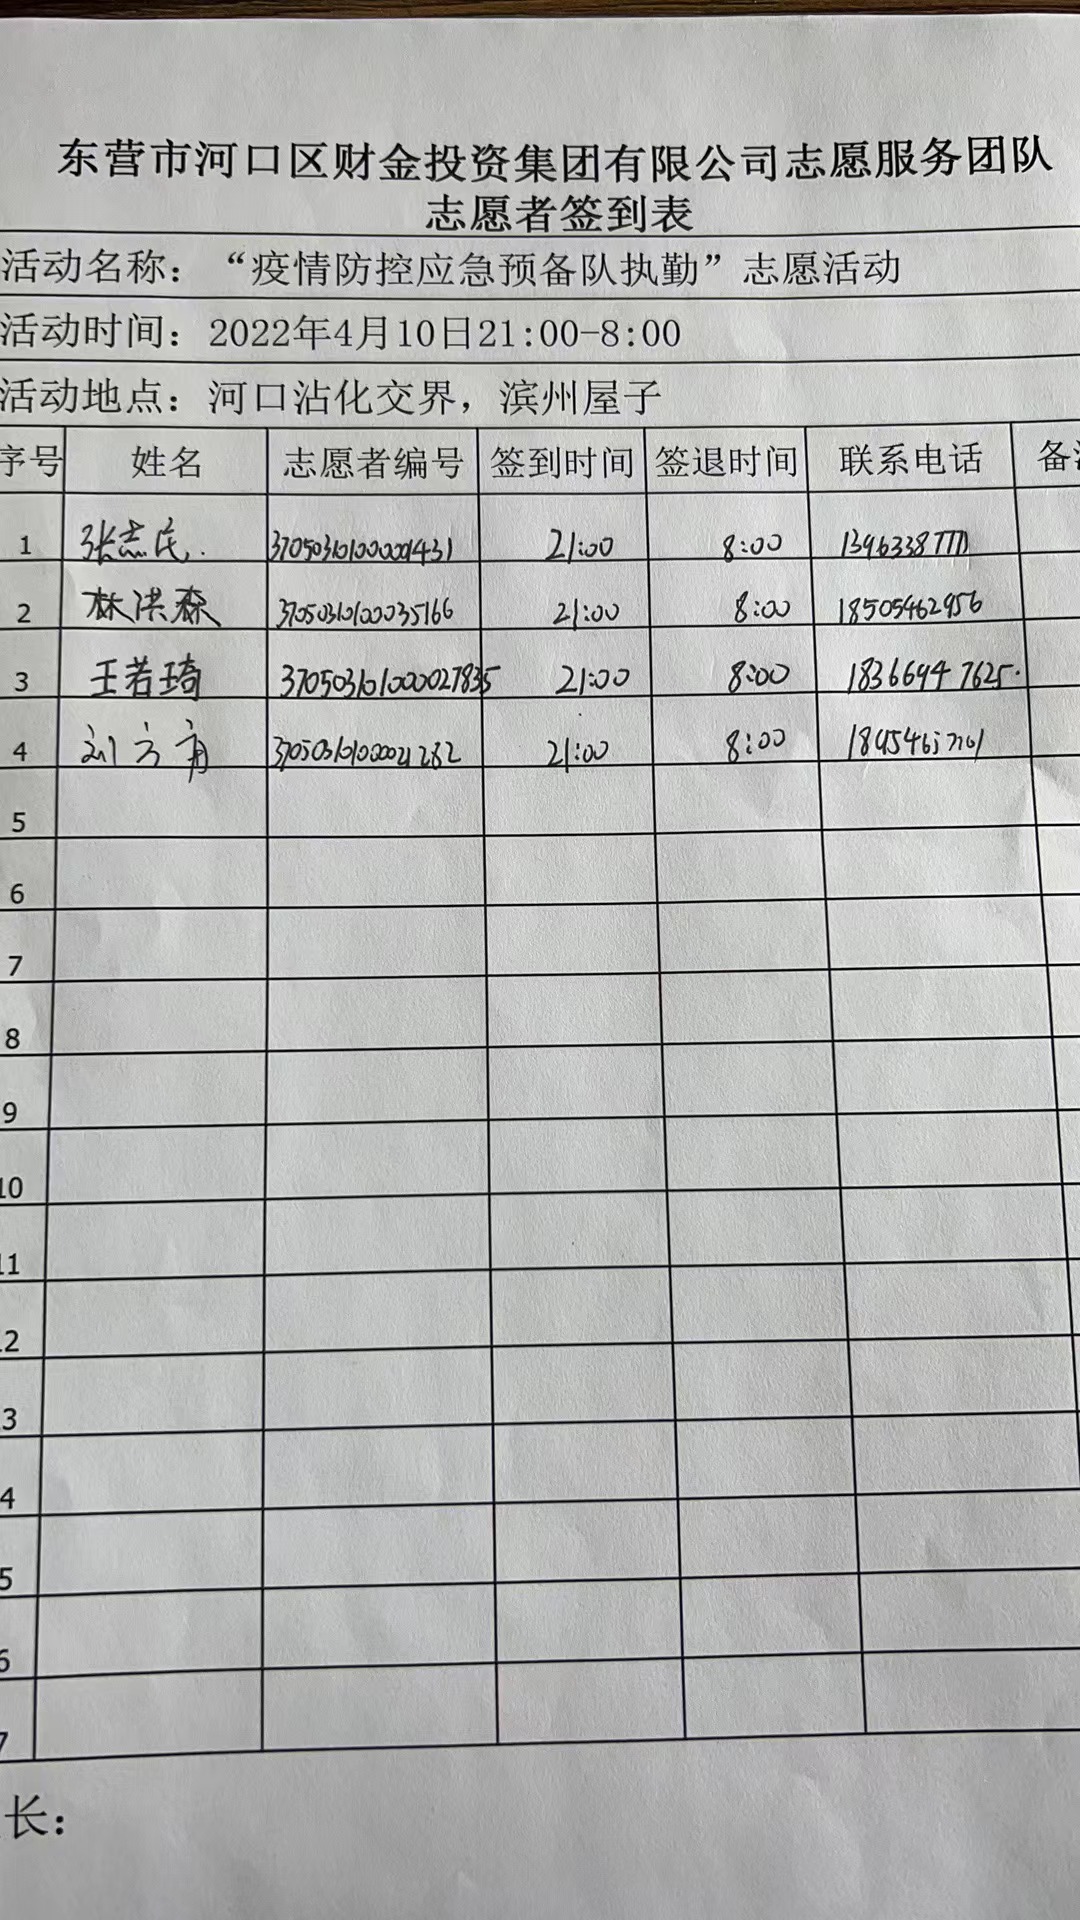 东营市河口区财金投资集团有限公司志愿服务团队
志愿者签到表
活动名称：“疫情防控应急预备队执勤”志愿活动
活动时间：2022年4月10日21:00-8:00
活动地点：河口沾化交界，滨州屋子
序号 姓名 志愿者编号 签到时间 签退时间 联系电话 备
1 张志民 21:00 8:00
2 林洪森 370503610100035166 21:00 8:00 18505462956
3 王若琦 3705036101000027835 21:00 8:00 18366947625
4 刘方 21:00 8:00
5
6
7
8
9
10
11
2
3
4
5
6
7
长：